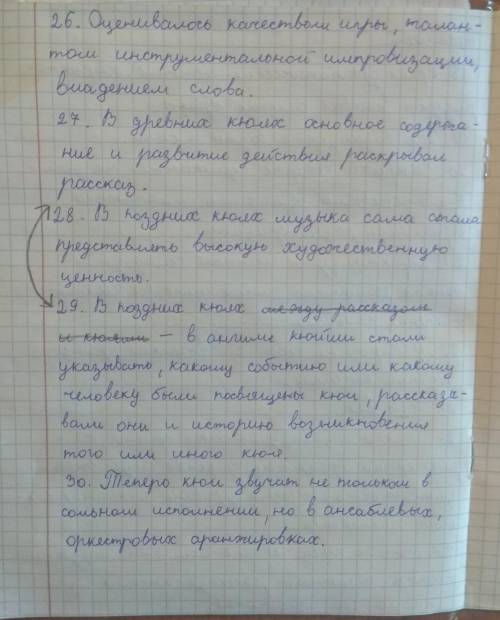 26. Оценивалось качеством игры, талан-
том инструментальной импровизации,
владением слова.
27. В древних кюях основное содержа-
ние и развитие действия раскрывал
рассказ.
28. В поздних кюях музыка сама стала
представлять высокую художественную
ценность.
29. В поздних кюях между рассказом
и кюями – в ангиме кюйши стали
указывать, какому событию или какому
человеку были посвящены кюи, рассказы-
вали они и историю возникновения
того или иного кюя.
30. Теперо кюи звучат не только в
сольном исполнении, но в ансаблевых,
оркестровых аранжировках.